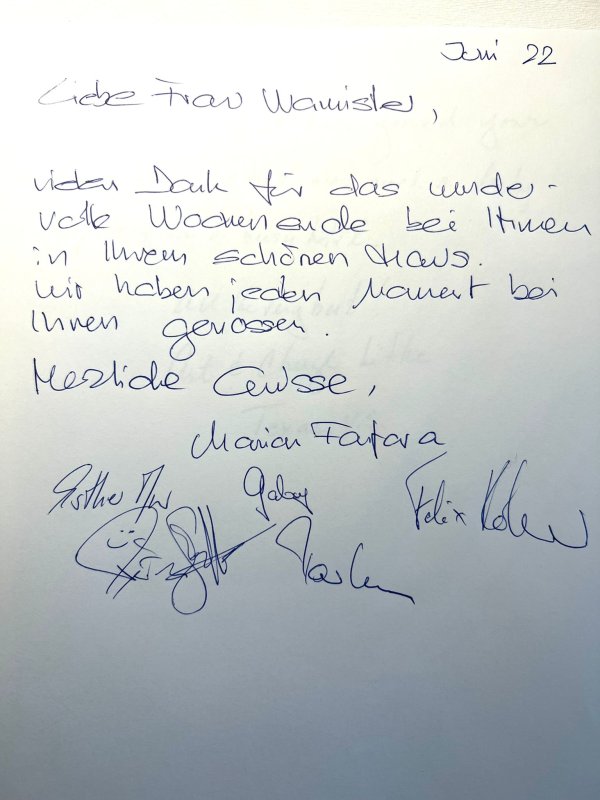 Juni 22
Liebe Frau Wannister,
vielen Dank für das wunder-
volle Wochenende bei Ihnen
in Ihrem schönen Haus.
Wir haben jeden Moment bei
Ihnen genossen.
Herzliche Grüsse,
Marion Fanfara
Esther Gaby Felix